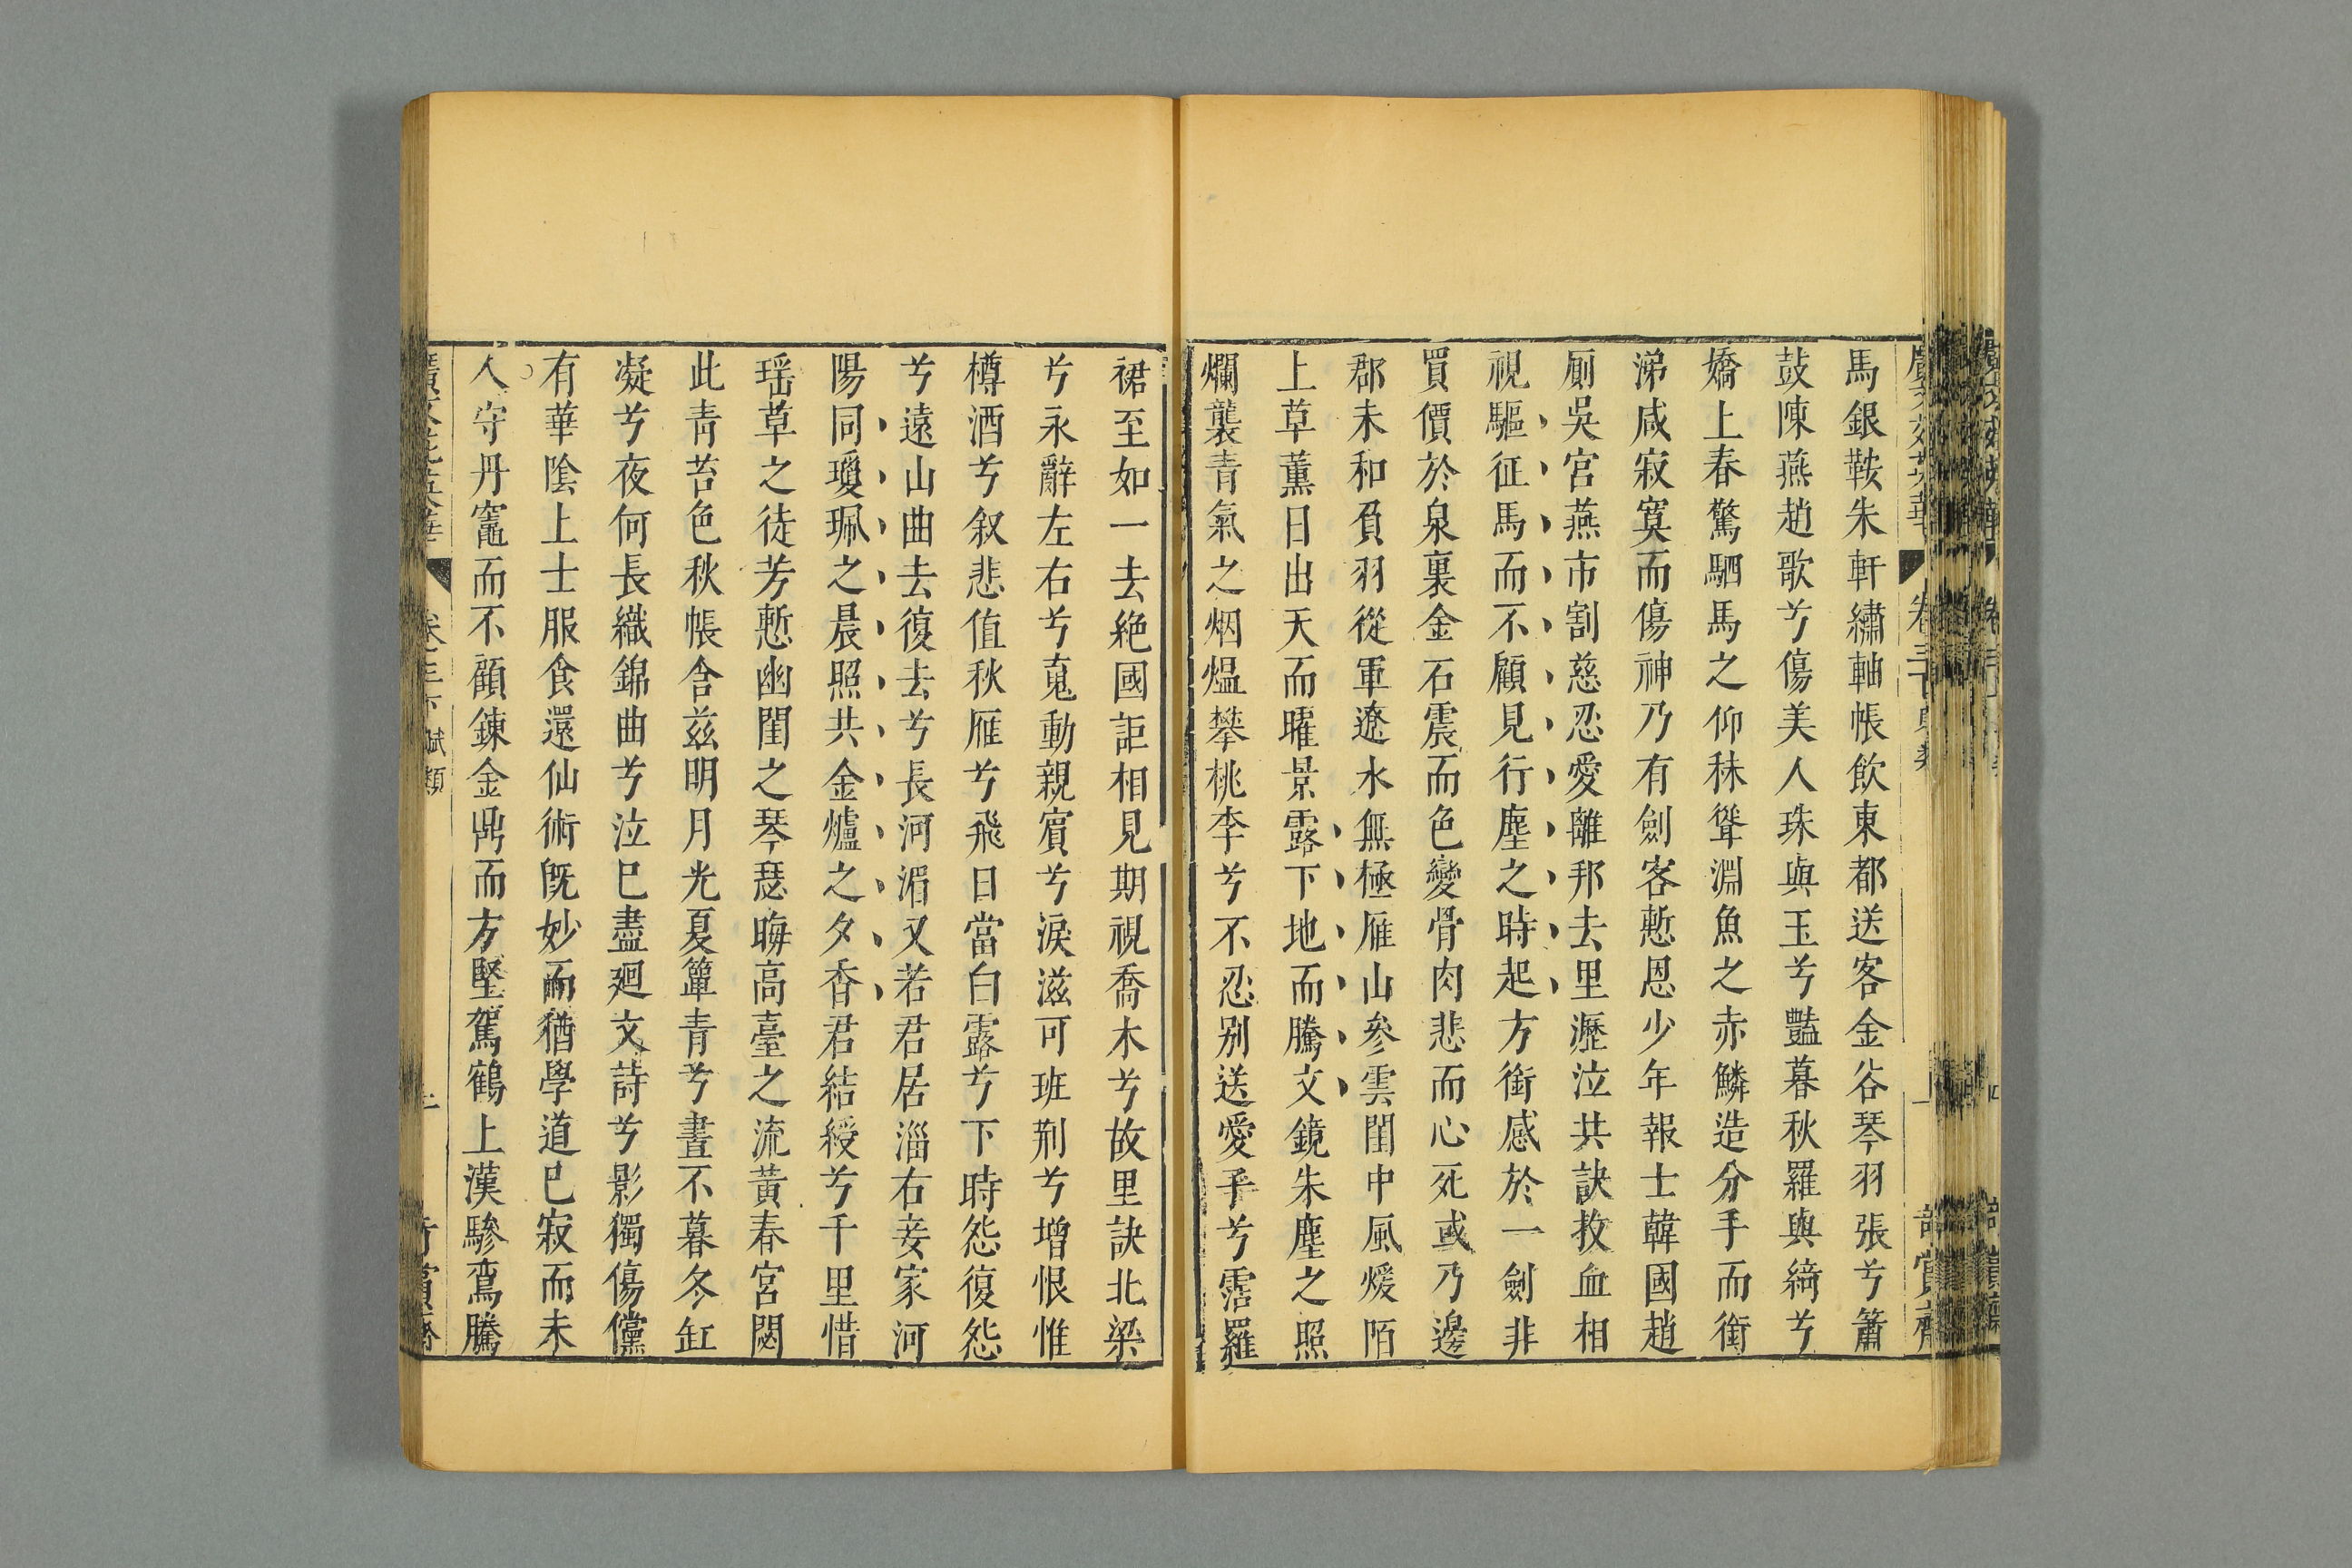 馬銀鞍朱軒繡軸帳飲東都送客金谷琴羽張兮簫
鼓陳燕趙歌兮傷美人珠與玉兮豔暮秋羅與綺兮
嬌上春驚駟馬之仰秣聳淵魚之赤鱗造分手而銜
涕咸寂寞而傷神乃有劍客慙恩少年報士韓國趙
厠吳宮燕市割慈忍愛離邦去里瀝泣共訣抆血相
視驅征馬而不顧見行塵之時起方銜感於一劍非
買價於泉裏金石震而色變骨肉悲而心死或乃邊
郡未和負羽從軍遼水無極雁山參雲閨中風煖陌
上草薰日出天而曜景露下地而騰文鏡朱塵之照
爛襲青氣之烟熅攀桃李兮不忍别送愛子兮霑羅
裙至如一去絶國詎相見期視喬木兮故里訣北梁
兮永辭左右兮䰟動親賓兮淚滋可班荆兮增恨惟
樽酒兮叙悲值秋雁兮飛日當白露兮下時怨復怨
兮遠山曲去復去兮長河湄又若君居淄右妾家河
陽同瓊珮之晨照共金爐之夕香君結綬兮千里惜
瑶草之徒芳慙幽閨之琴瑟晦高臺之流黃春宮閟
此青苔色秋帳含兹明月光夏簟青兮晝不暮冬缸
凝兮夜何長織錦曲兮泣已盡廻文詩兮影獨傷儻
有華陰上士服食還仙術既妙而猶學道已寂而未
人守丹竈而不顧錬金鼎而方堅駕鶴上漢驂鸞騰